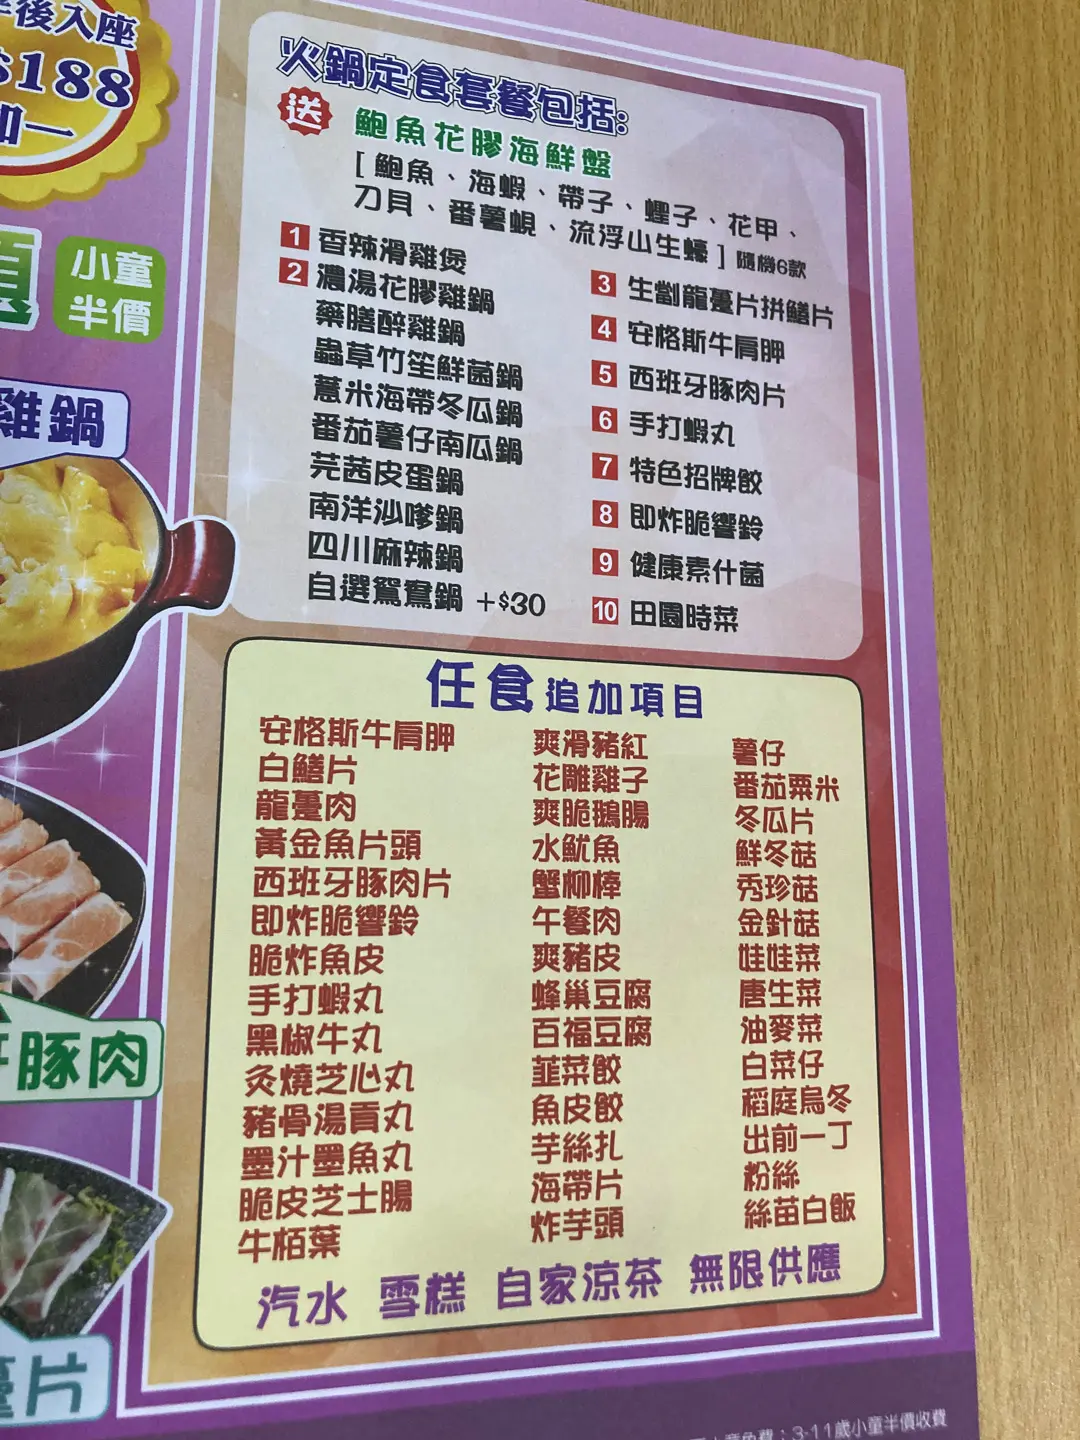 後入座
$188
加一
小童
半價
雞鍋
豚肉
片
火鍋定食套餐包括:
送 鮑魚花膠海鮮盤
[ 鮑魚、海蝦、帶子、蟶子、花甲、
刀貝、番薯蜆、流浮山生蠔 ] 隨機6款
1 香辣滑雞煲
2 濃湯花膠雞鍋
藥膳醉雞鍋
蟲草竹笙鮮菌鍋
薏米海帶冬瓜鍋
番茄薯仔南瓜鍋
芫茜皮蛋鍋
南洋沙嗲鍋
四川麻辣鍋
自選鴛鴦鍋 +$30
3 生劏龍躉片拼鱔片
4 安格斯牛肩胛
5 西班牙豚肉片
6 手打蝦丸
7 特色招牌餃
8 即炸脆響鈴
9 健康素什菌
10 田園時菜
任食追加項目
安格斯牛肩胛
白鱔片
龍躉肉
黃金魚片頭
西班牙豚肉片
即炸脆響鈴
脆炸魚皮
手打蝦丸
黑椒牛丸
炙燒芝心丸
豬骨湯貢丸
墨汁墨魚丸
脆皮芝士腸
牛栢葉
爽滑豬紅
花雕雞子
爽脆鵝腸
水魷魚
蟹柳棒
午餐肉
爽豬皮
蜂巢豆腐
百福豆腐
韮菜餃
魚皮餃
芋絲扎
海帶片
炸芋頭
薯仔
番茄粟米
冬瓜片
鮮冬菇
秀珍菇
金針菇
娃娃菜
唐生菜
油麥菜
白菜仔
稻庭烏冬
出前一丁
粉絲
絲苗白飯
汽水 雪糕 自家涼茶 無限供應
3-11歲小童半價收費